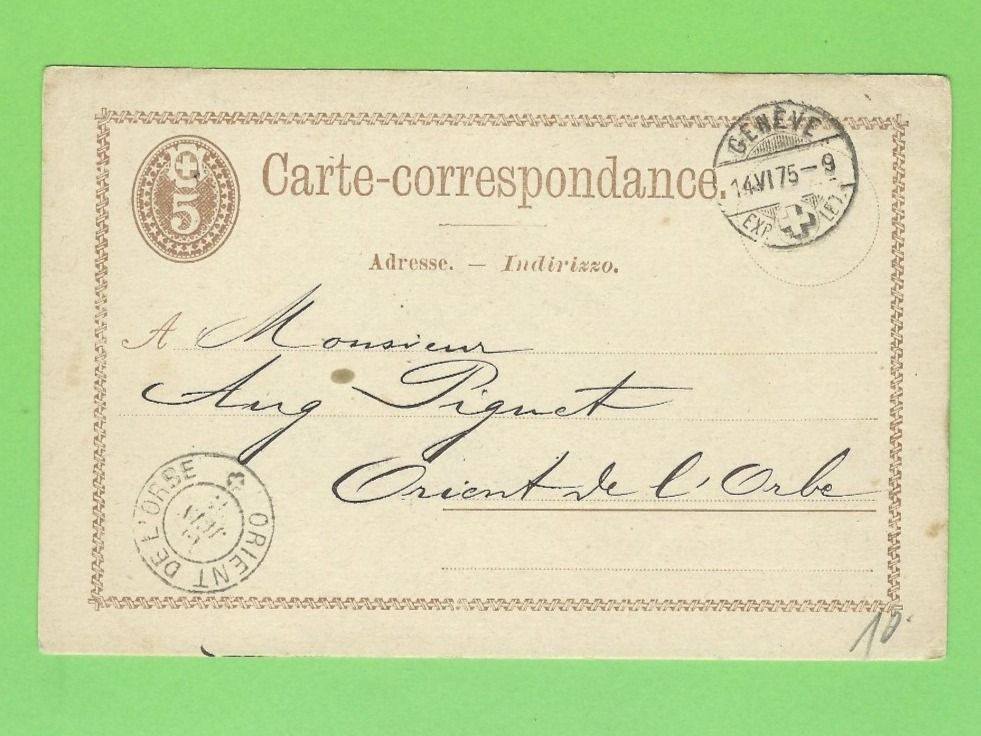 5
Carte-correspondance.
GENÈVE
14.VI 75-9
EXP. LET.
Adresse. — Indirizzo.
A Monsieur
Aug Piguet
Orient de l'Orbe
ORIENT DE L'ORBE
10.